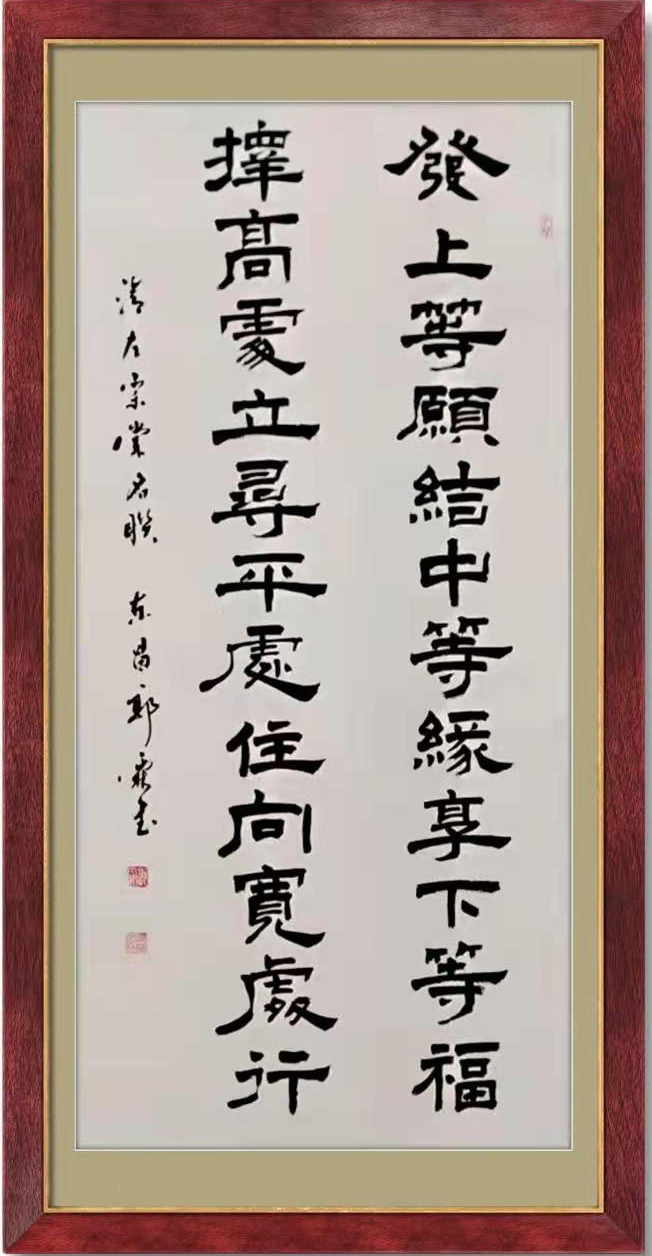 發上等願結中等緣享下等福
擇高處立尋平處住向寬處行
清左宗棠名聯 東昌郭霖書